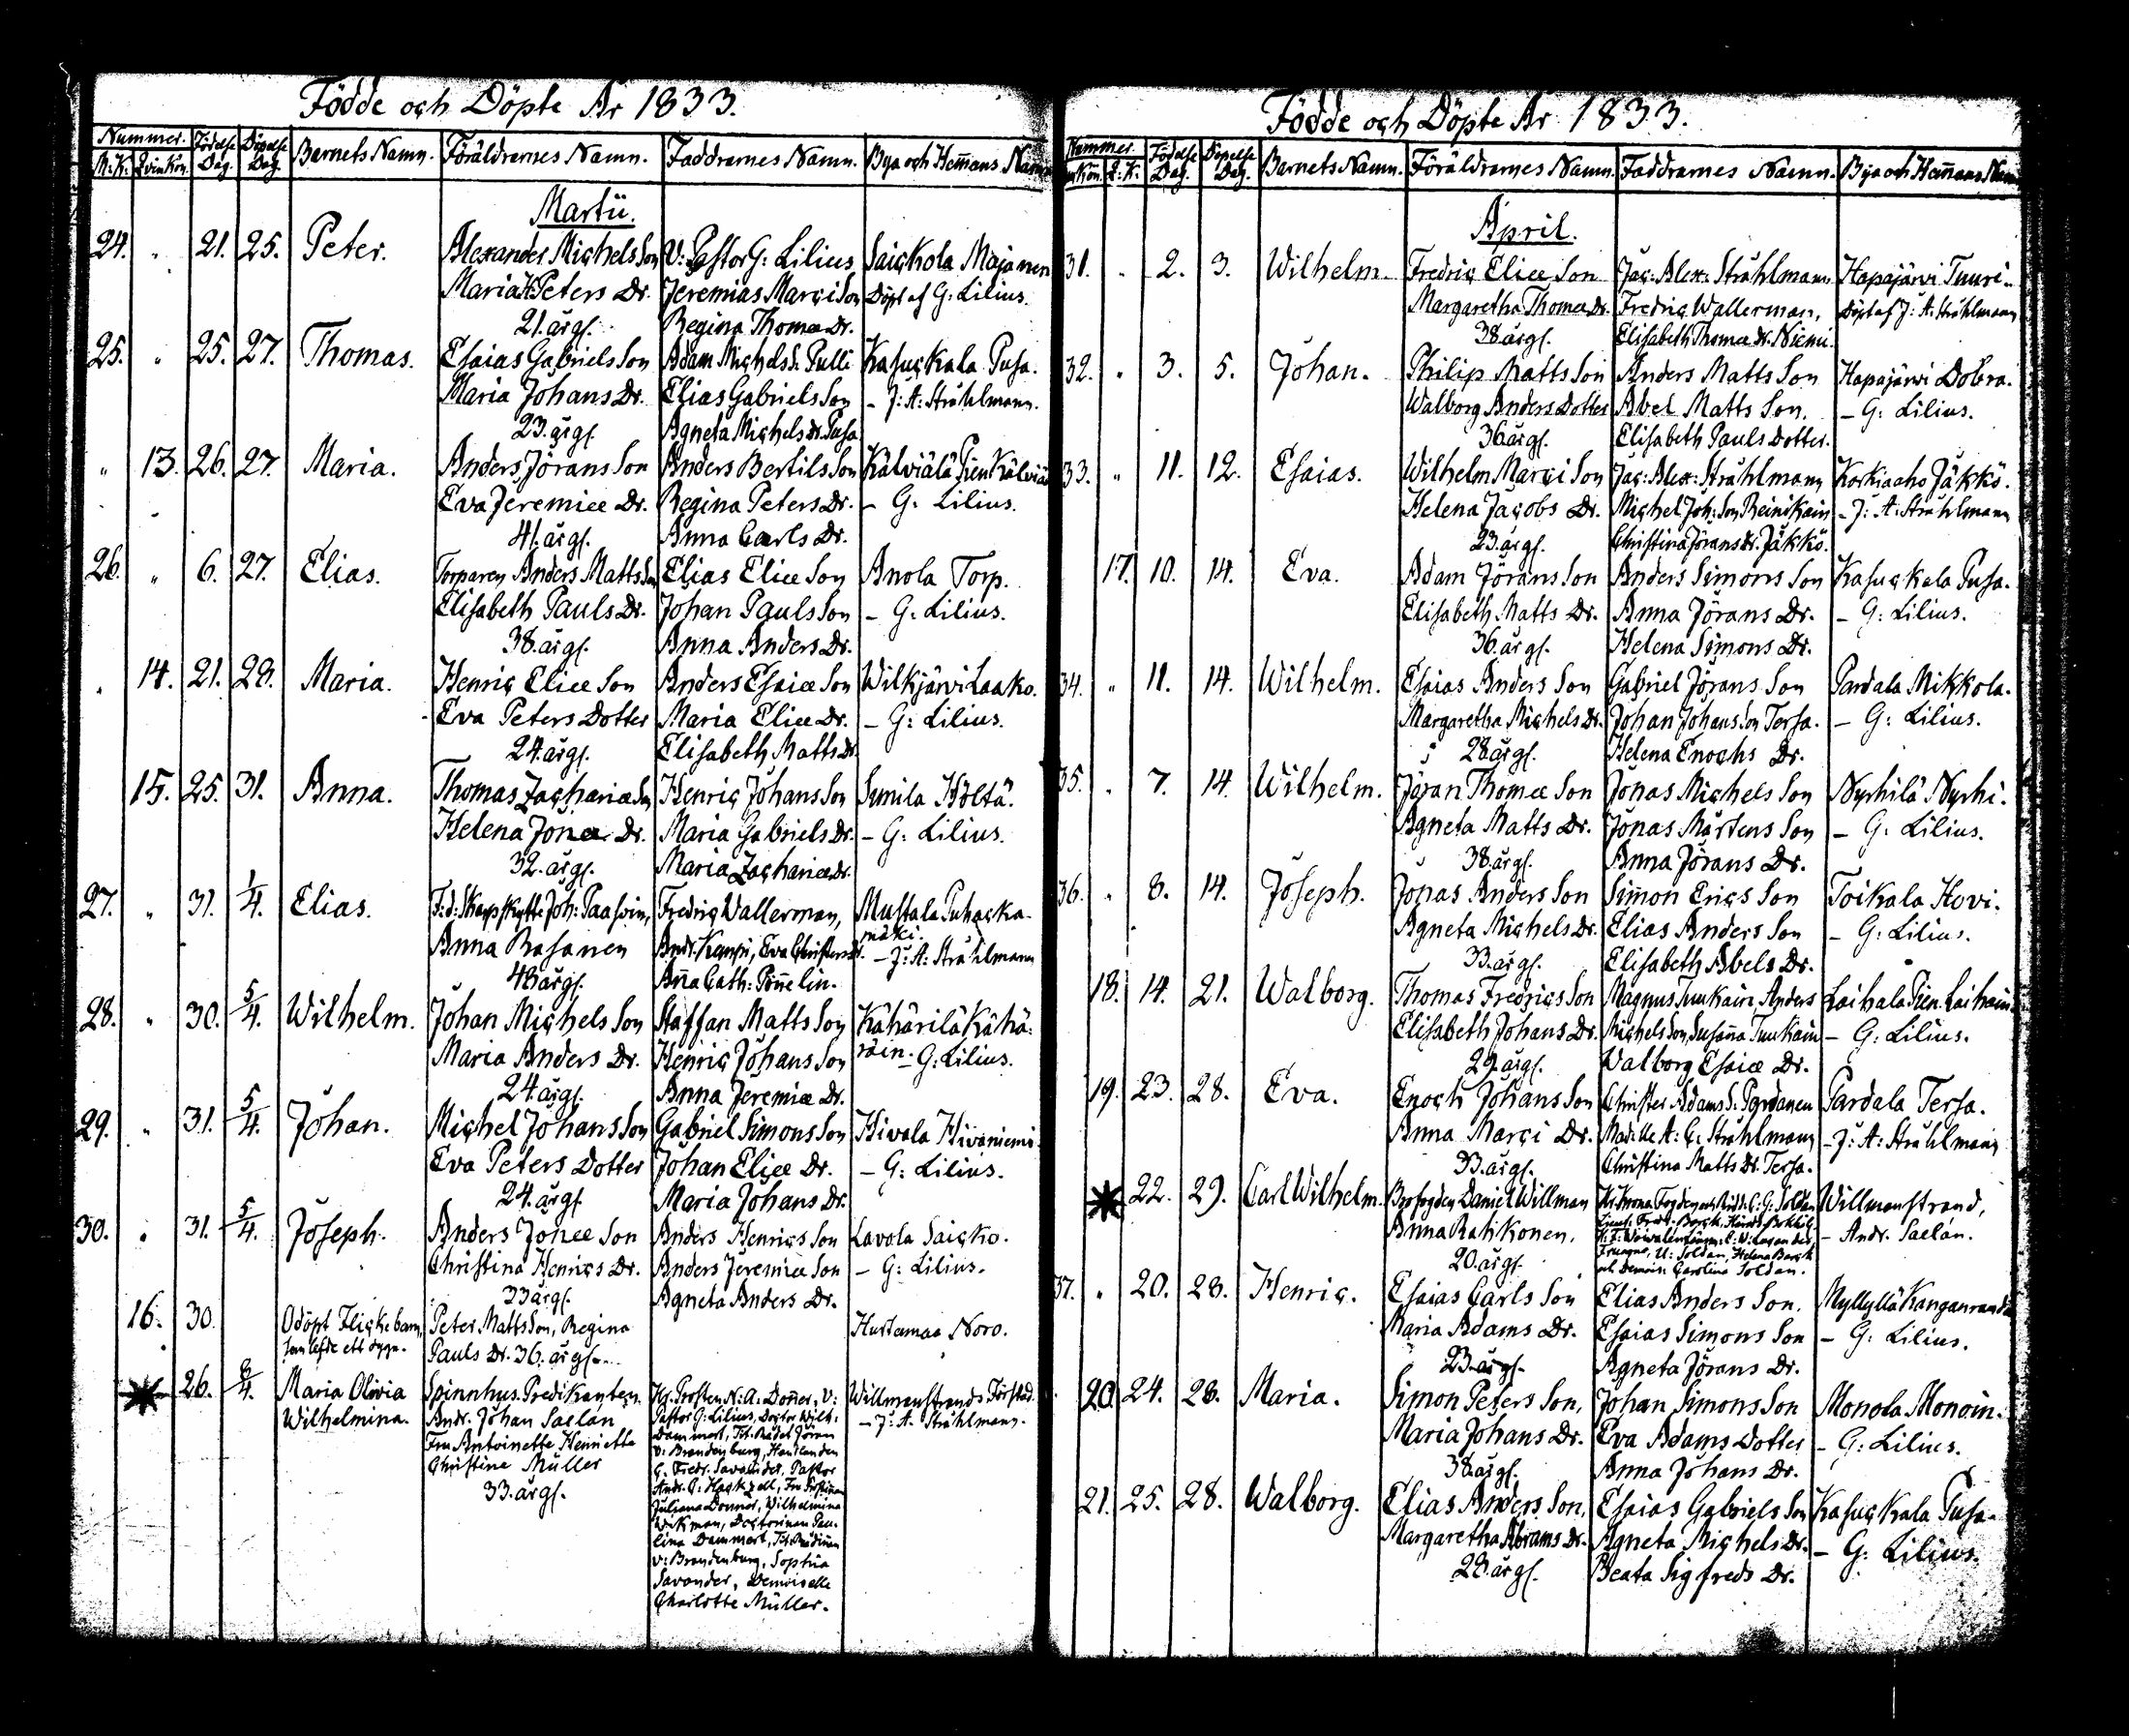 Födde och Döpte År 1833.
Nummer. Födelse Döpelse Barnets Namn. Föräldrarnes Namn. Faddrarnes Namn. Bya och Hem̄ans Namn
M:K: Qvinkön. Dag. Dag.
Martii.
24. „ 21. 25. Peter. Alexander Michels Son V: Pastor G: Lilius Saickola Majanen
Maria Peters Dr. Jeremias Marci Son Döpt af G: Lilius.
21. årgl. Regina Thomæ Dr.
25. „ 25. 27. Thomas. Esaias Gabriels Son Adam Michels S. Pulli Kasuckala Pusa.
Maria Johans Dr. Elias Gabriels Son – J: A: Stråhlmann.
23. årgl. Agneta Michels Dr. Pusa
„ 13. 26. 27. Maria. Anders Jörans Son Anders Bertils Son Kälviälä Pien Kälviä
Eva Jeremiæ Dr. Regina Peters Dr. – G: Lilius.
41. årgl. Anna Carls Dr.
26. „ 6. 27. Elias. Torparen Anders Matts Son Elias Eliæ Son Anola Torp.
Elisabeth Pauls Dr. Johan Pauls Son – G: Lilius.
38. årgl. Anna Anders Dr.
„ 14. 21. 28. Maria. Henric Eliæ Son Anders Esaiæ Son Wilkjärvi Laako.
Eva Peters Dotter Maria Eliæ Dr. – G: Lilius.
24. årgl. Elisabeth Matts Dr.
15. 25. 31. Anna. Thomas Zachariæ Son Henric Johans Son Sumila Hölta.
Helena Jonæ Dr. Maria Gabriels Dr. – G: Lilius.
32. årgl. Maria Zachariæ Dr.
27. „ 31. 1/4. Elias. F:d: Skarpskytte Joh: Paasoin, Fredric Wallerman, Mustala Puhacka-
mäki.
Anna Rasanen Andr. Kempi, Eva Christers Dr. – J: A: Stråhlmann
48 årgl. An̄a Cath: Pön̄elin.
28. „ 30. 5/4. Wilhelm. Johan Michels Son Staffan Matts Son Kähärilä Kähä-
Maria Anders Dr. Henric Johans Son räin. – G: Lilius.
24. årgl. Anna Jeremiæ Dr.
29. „ 31. 5/4. Johan. Michel Johans Son Gabriel Simons Son Hivala Hivaniemi
Eva Peters Dotter Johan Eliæ Dr. – G: Lilius.
24. årgl Maria Johans Dr.
30. „ 31. 5/4. Joseph. Anders Jonæ Son Anders Henrics Son Lavola Saicko.
Christina Henrics Dr. Anders Jeremiæ Son – G: Lilius.
33 årgl. Agneta Anders Dr.
16. 30. Odöpt Flicke barn, Peter Matts Son, Regina Hurtamaa Noro.
som lefde ett dygn. Pauls Dr. 36. årgl.
26. 8/4. Maria Olivia Spinnhus Predikanten Willmanstrands Förstad
Wilhelmina. Andr. Johan Saelan – J: A. Stråhlmann.
Fru Antoinette Henriette
Christina Müller
33. årgl.
Hr. Prosten N: A: Don̄er, V:
Pastor G: Lilius, Doctor Wilh:
Dammert, Tit: Rådet Jöran
v: Brandenburg, Handlanden
C. Fredr. Savander, Pastor
Andr. G: Hackzell, Fru Prostin̄an
Juliana Donner, Wilhelmina
Wikman, Doctorinan Pau-
lina Dammert, Tit: Rådin̄an
v: Brandenburg, Sophia
Savander, Demoiselle
Charlotte Müller.
Födde och Döpte År 1833.
Nummer. Födelse Döpelse Barnets Namn. Föräldrarnes Namn. Faddrarnes Namn. Bya och Hem̄ans Namn
Q: K: Dag. Dag.
April.
31. „ 2. 3. Wilhelm. Fredric Eliæ Son Jac: Alex: Stråhlmann Hapajärvi Tuuri.
Margaretha Thomæ Dr. Fredric Wallerman, Döpt af J: A: Stråhlmann
38 årgl. Elisabeth Thomæ Dr. Niemi.
32. „ 3. 5. Johan. Philip Matts Son Anders Matts Son Hapajärvi Dobra.
Walborg Anders Dotter Abel Matts Son. – G: Lilius.
36 årgl. Elisabeth Pauls Dotter.
33. „ 11. 12. Esaias. Wilhelm Marci Son Jac: Alex: Stråhlmann Korkiaaho Jäkkö.
Helena Jacobs Dr. Michel Joh: Son Reinikain – J: A: Stråhlmann
23. årgl. Christina Jörans Dr. Jäkkö.
17. 10. 14. Eva. Adam Jörans Son Anders Simons Son Kasuckala Pusa.
Elisabeth Matts Dr. Anna Jörans Dr. – G: Lilius.
36. årgl. Helena Simons Dr.
34. „ 11. 14. Wilhelm. Esaias Anders Son Gabriel Jörans Son Pardala Mikkola.
Margaretha Michels Dr. Johan Johans Son Tersa. – G: Lilius.
28 årgl. Helena Enochs Dr.
35. „ 7. 14. Wilhelm. Jöran Thomæ Son Jonas Michels Son Nyrhilä Nyrhi.
Agneta Matts Dr. Jonas Mårtens Son – G: Lilius.
38. årgl. Anna Jörans Dr.
36. „ 8. 14. Joseph. Jonas Anders Son Sim̄on Erics Son Toikala Hovi.
Agneta Michels Dr. Elias Anders Son – G: Lilius.
33. årgl. Elisabeth Abels Dr.
18. 14. 21. Walborg. Thomas Fredrics Son Magnus Tuukain Anders Laihala Pien Laihain
Elisabeth Johans Dr. Michels Son, Susan̄a Tuukain – G: Lilius.
29. årgl. Walborg Esaiæ Dr.
19. 23. 28. Eva. Enoch Johans Son Christer Adams S: Pardanen Pardala Tersa.
Anna Marci Dr. Mad:lle A: C: Stråhlmann – J: A: Stråhlmann
33. årgl. Christina Matts Dr. Tersa.
22. 29. Carl Wilhelm. Brofogden Daniel Willman Willmanstrand,
Anna Rahkonen. – Andr. Saelan.
20. årgl.
Fruarne, U: Soldan, Helena Bergh
och Demois: Carolina Soldan.
37. „ 20. 28. Henric. Esaias Carls Son Elias Anders Son. Myllyllä Kanganranda
Maria Adams Dr. Esaias Simons Son – G: Lilius.
23. årgl. Agneta Jörans Dr.
20. 24. 28. Maria. Simon Peters Son, Johan Simons Son Monola Monoin.
Maria Johans Dr. Eva Adams Dotter – G: Lilius.
38. årgl. Anna Johans Dr.
21. 25. 28. Walborg. Elias Anders Son, Esaias Gabriels Son Kasuckala Pusa.
Margaretha Abrams Dr. Agneta Michels Dr. – G: Lilius.
28. årgl. Beata Sigfreds Dr.